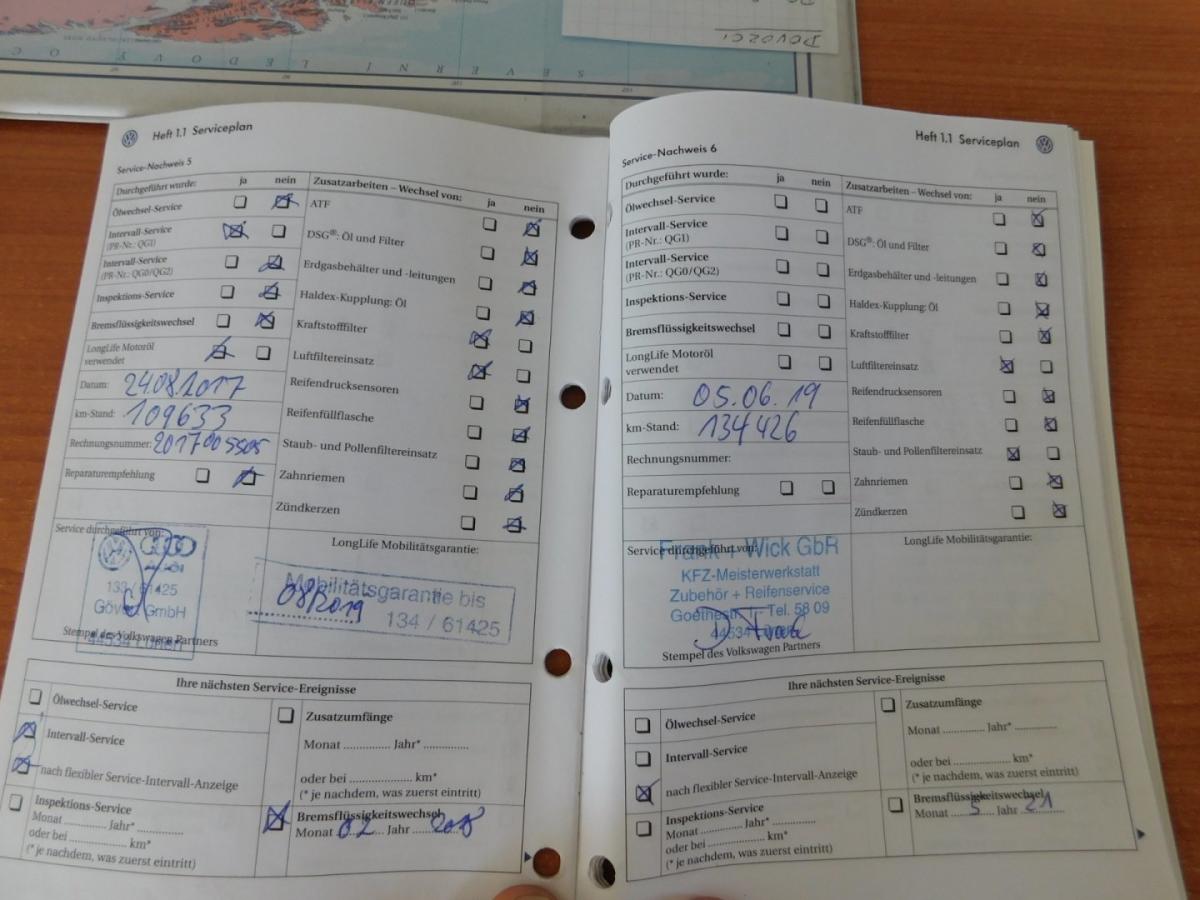 DOVOZCI
SEVERNÍ LEDOVÝ OC
Heft 1.1 Serviceplan
Service-Nachweis 5
Durchgeführt wurde: ja nein
Ölwechsel-Service
Intervall-Service
(PR-Nr.: QG1)
Intervall-Service
(PR-Nr.: QG0/QG2)
Inspektions-Service
Bremsflüssigkeitswechsel
LongLife Motoröl
verwendet
Datum: 24.08.2017
km-Stand: 109633
Rechnungsnummer: 2017005505
Reparaturempfehlung
Zusatzarbeiten – Wechsel von: ja nein
ATF
DSG®: Öl und Filter
Erdgasbehälter und -leitungen
Haldex-Kupplung: Öl
Kraftstofffilter
Luftfiltereinsatz
Reifendrucksensoren
Reifenfüllflasche
Staub- und Pollenfiltereinsatz
Zahnriemen
Zündkerzen
Service durchgeführt von:
133 / 61425
GmbH
44534
Stempel des Volkswagen Partners
LongLife Mobilitätsgarantie:
Mobilitätsgarantie bis
08/2019
134 / 61425
Ihre nächsten Service-Ereignisse
Ölwechsel-Service
Intervall-Service
nach flexibler Service-Intervall-Anzeige
Inspektions-Service
Monat ............... Jahr* ...............
oder bei .................... km*
(* je nachdem, was zuerst eintritt)
Zusatzumfänge
Monat ............... Jahr* ...............
oder bei .................... km*
(* je nachdem, was zuerst eintritt)
Bremsflüssigkeitswechsel
Monat 02 Jahr 2018
Heft 1.1 Serviceplan
Service-Nachweis 6
Durchgeführt wurde: ja nein
Ölwechsel-Service
Intervall-Service
(PR-Nr.: QG1)
Intervall-Service
(PR-Nr.: QG0/QG2)
Inspektions-Service
Bremsflüssigkeitswechsel
LongLife Motoröl
verwendet
Datum: 05.06.19
km-Stand: 134426
Rechnungsnummer:
Reparaturempfehlung
Zusatzarbeiten – Wechsel von: ja nein
ATF
DSG®: Öl und Filter
Erdgasbehälter und -leitungen
Haldex-Kupplung: Öl
Kraftstofffilter
Luftfiltereinsatz
Reifendrucksensoren
Reifenfüllflasche
Staub- und Pollenfiltereinsatz
Zahnriemen
Zündkerzen
Service durchgeführt von:
Frank + Wick GbR
KFZ-Meisterwerkstatt
Zubehör + Reifenservice
Goethestr. 1 - Tel. 58 09
44534
Stempel des Volkswagen Partners
LongLife Mobilitätsgarantie:
Ihre nächsten Service-Ereignisse
Ölwechsel-Service
Intervall-Service
nach flexibler Service-Intervall-Anzeige
Inspektions-Service
Monat ............... Jahr* ...............
oder bei .................... km*
(* je nachdem, was zuerst eintritt)
Zusatzumfänge
Monat ............... Jahr* ...............
oder bei .................... km*
(* je nachdem, was zuerst eintritt)
Bremsflüssigkeitswechsel
Monat 5 Jahr 21